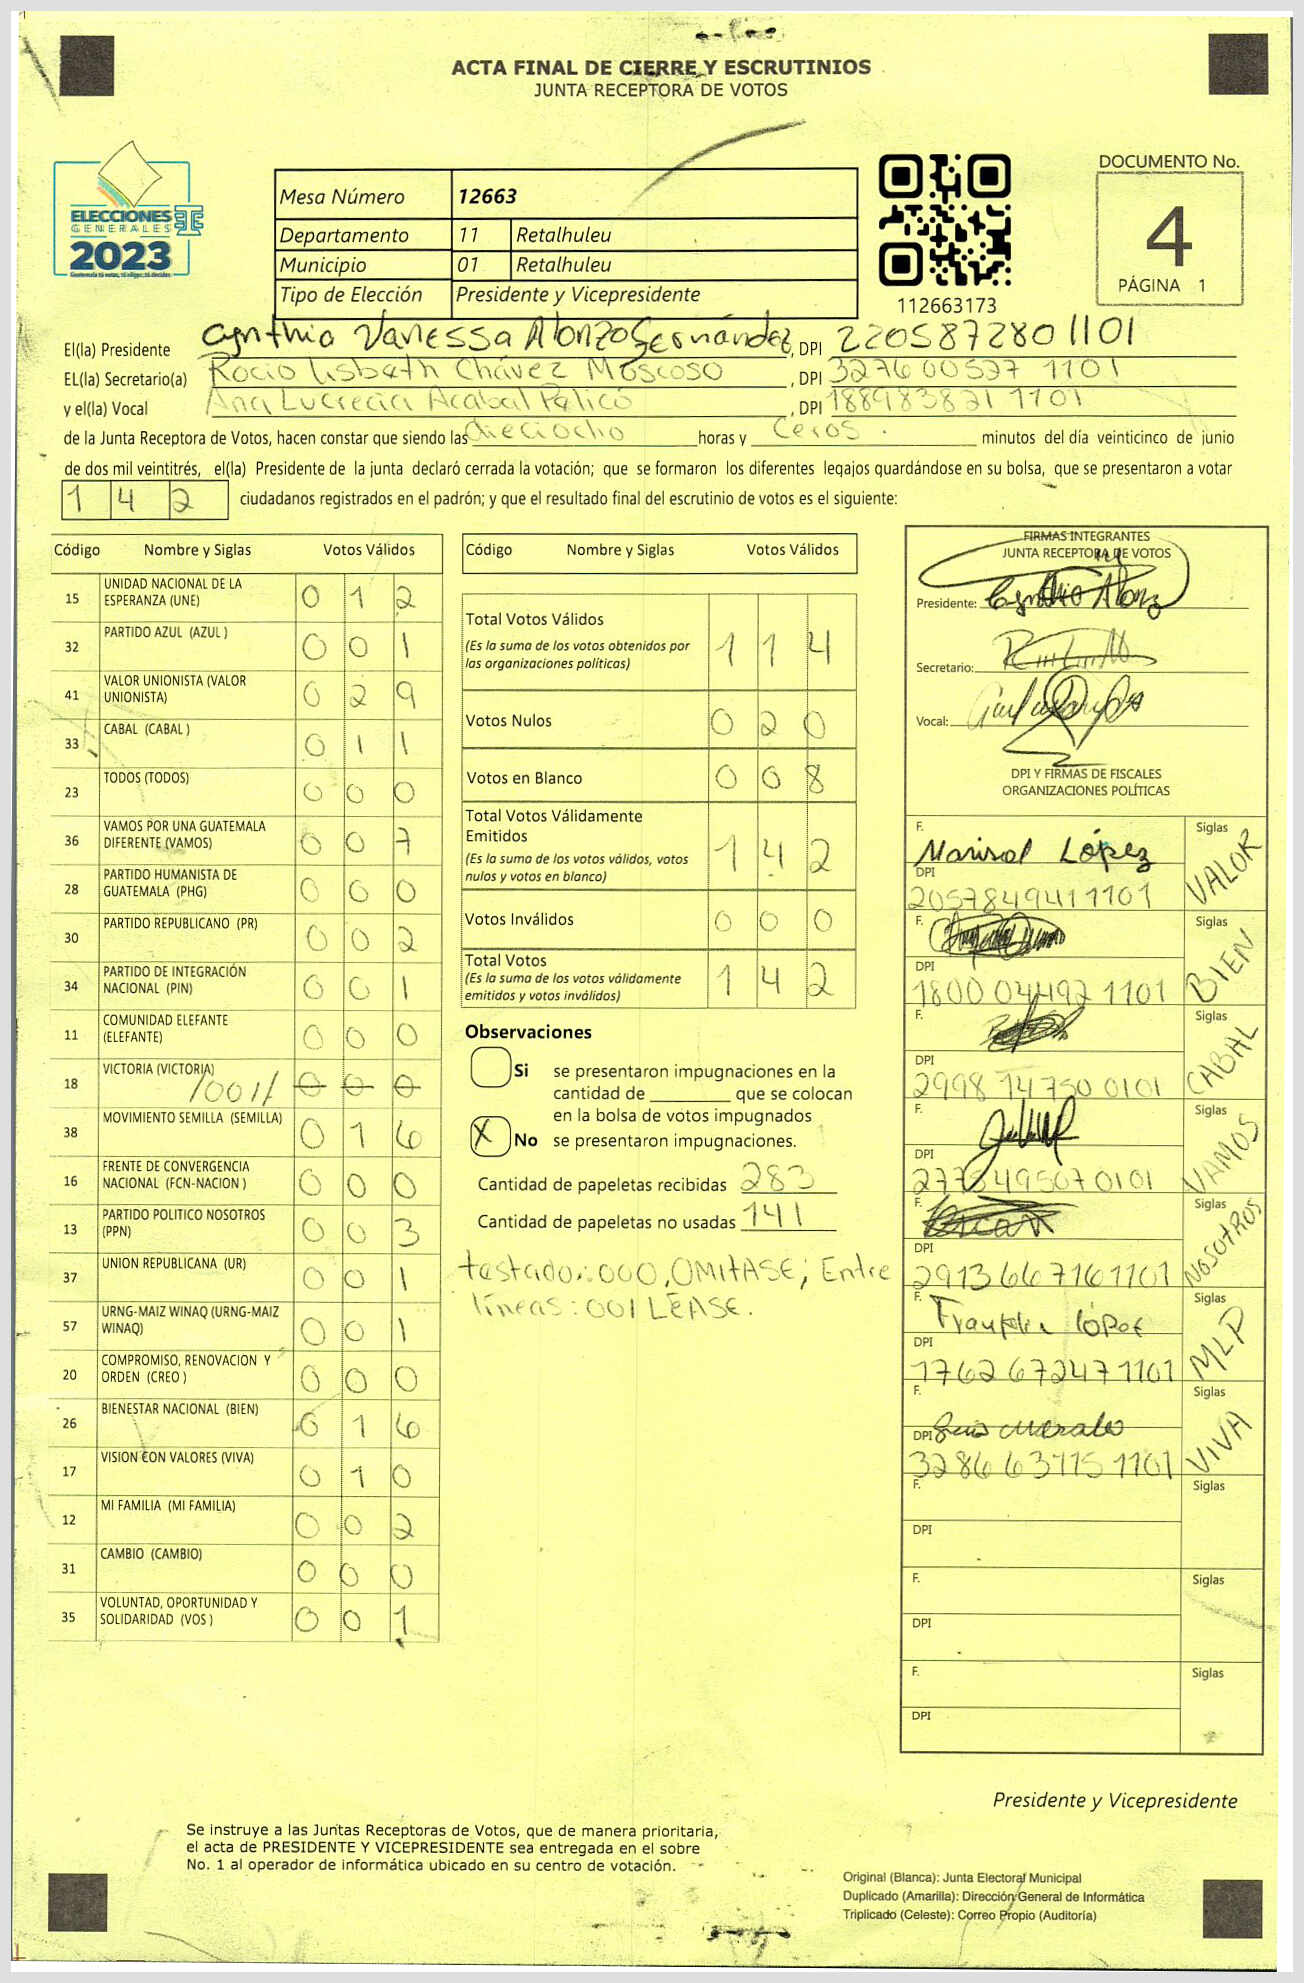 ACTA FINAL DE CIERRE Y ESCRUTINIOS
JUNTA RECEPTORA DE VOTOS
ELECCIONES
GENERALES
2023
Guatemala tú votas, tú eliges, tú decides
Mesa Número 12663
Departamento 11 Retalhuleu
Municipio 01 Retalhuleu
Tipo de Elección Presidente y Vicepresidente
112663173
DOCUMENTO No.
4
PÁGINA 1
El(la) Presidente Cynthia Vanessa Alonzo Gernández, DPI 2205872801101
EL(la) Secretario(a) Rocio Lisbeth Chávez Moscoso, DPI 327600527 1101
y el(la) Vocal Ana Lucrecia Acabal Pelicó, DPI 188983821 1101
de la Junta Receptora de Votos, hacen constar que siendo las dieciocho horas y Ceros. minutos del día veinticinco de junio
de dos mil veintitrés, el(la) Presidente de la junta declaró cerrada la votación; que se formaron los diferentes legajos guardándose en su bolsa, que se presentaron a votar
142 ciudadanos registrados en el padrón; y que el resultado final del escrutinio de votos es el siguiente:
Código Nombre y Siglas Votos Válidos
15 UNIDAD NACIONAL DE LA ESPERANZA (UNE) 0 1 2
32 PARTIDO AZUL (AZUL ) 0 0 1
41 VALOR UNIONISTA (VALOR UNIONISTA) 0 2 9
33 CABAL (CABAL ) 0 1 1
23 TODOS (TODOS) 0 0 0
36 VAMOS POR UNA GUATEMALA DIFERENTE (VAMOS) 0 0 7
28 PARTIDO HUMANISTA DE GUATEMALA (PHG) 0 0 0
30 PARTIDO REPUBLICANO (PR) 0 0 2
34 PARTIDO DE INTEGRACIÓN NACIONAL (PIN) 0 0 1
11 COMUNIDAD ELEFANTE (ELEFANTE) 0 0 0
18 VICTORIA (VICTORIA) /001/ 0 0 0
38 MOVIMIENTO SEMILLA (SEMILLA) 0 1 6
16 FRENTE DE CONVERGENCIA NACIONAL (FCN-NACION ) 0 0 0
13 PARTIDO POLITICO NOSOTROS (PPN) 0 0 3
37 UNION REPUBLICANA (UR) 0 0 1
57 URNG-MAIZ WINAQ (URNG-MAIZ WINAQ) 0 0 1
20 COMPROMISO, RENOVACION Y ORDEN (CREO ) 0 0 0
26 BIENESTAR NACIONAL (BIEN) 0 1 6
17 VISION CON VALORES (VIVA) 0 1 0
12 MI FAMILIA (MI FAMILIA) 0 0 2
31 CAMBIO (CAMBIO) 0 0 0
35 VOLUNTAD, OPORTUNIDAD Y SOLIDARIDAD (VOS ) 0 0 1
Código Nombre y Siglas Votos Válidos
Total Votos Válidos 1 1 4
(Es la suma de los votos obtenidos por
las organizaciones políticas)
Votos Nulos 0 2 0
Votos en Blanco 0 0 8
Total Votos Válidamente
Emitidos 1 4 2
(Es la suma de los votos válidos, votos
nulos y votos en blanco)
Votos Inválidos 0 0 0
Total Votos 1 4 2
(Es la suma de los votos válidamente
emitidos y votos inválidos)
Observaciones
Si se presentaron impugnaciones en la
cantidad de ________ que se colocan
en la bolsa de votos impugnados
X No se presentaron impugnaciones.
Cantidad de papeletas recibidas 283
Cantidad de papeletas no usadas 141
testado: 000, OMITASE; Entre
líneas: 001 LEASE.
FIRMAS INTEGRANTES
JUNTA RECEPTORA DE VOTOS
Presidente: Cynthia Alonz
Secretario:
Vocal:
DPI Y FIRMAS DE FISCALES
ORGANIZACIONES POLÍTICAS
F. Marisol López Siglas VALOR
DPI 2057849411101
F. Siglas BIEN
DPI 1800 04492 1101
F. Siglas CABAL
DPI 2998 14750 0101
F. Siglas VAMOS
DPI 2775495070101
F. Siglas NOSOTROS
DPI 2913667161101
F. Franklin lópez Siglas MLP
DPI 1762 67247 1101
F. Luis Morales Siglas VIVA
DPI 3286 63775 1101
F. Siglas
DPI
F. Siglas
DPI
F. Siglas
DPI
Presidente y Vicepresidente
Se instruye a las Juntas Receptoras de Votos, que de manera prioritaria,
el acta de PRESIDENTE Y VICEPRESIDENTE sea entregada en el sobre
No. 1 al operador de informática ubicado en su centro de votación.
Original (Blanca): Junta Electoral Municipal
Duplicado (Amarilla): Dirección General de Informática
Triplicado (Celeste): Correo Propio (Auditoría)